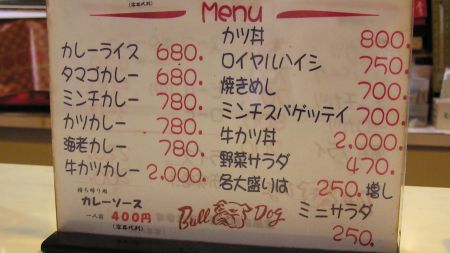 Menu
カレーライス 680.
タマゴカレー 680.
ミンチカレー 780.
カツカレー 780.
海老カレー 780.
牛カツカレー 2,000.
持ち帰り用
カレーソース
一人前 400円
(容器代別)
カツ丼 800.
ロイヤルハイシ 750.
焼きめし 700.
ミンチスパゲッテイ 700.
牛カツ丼 2,000.
野菜サラダ 470.
各大盛りは 250.増し
Bull Dog
ミニサラダ 250.